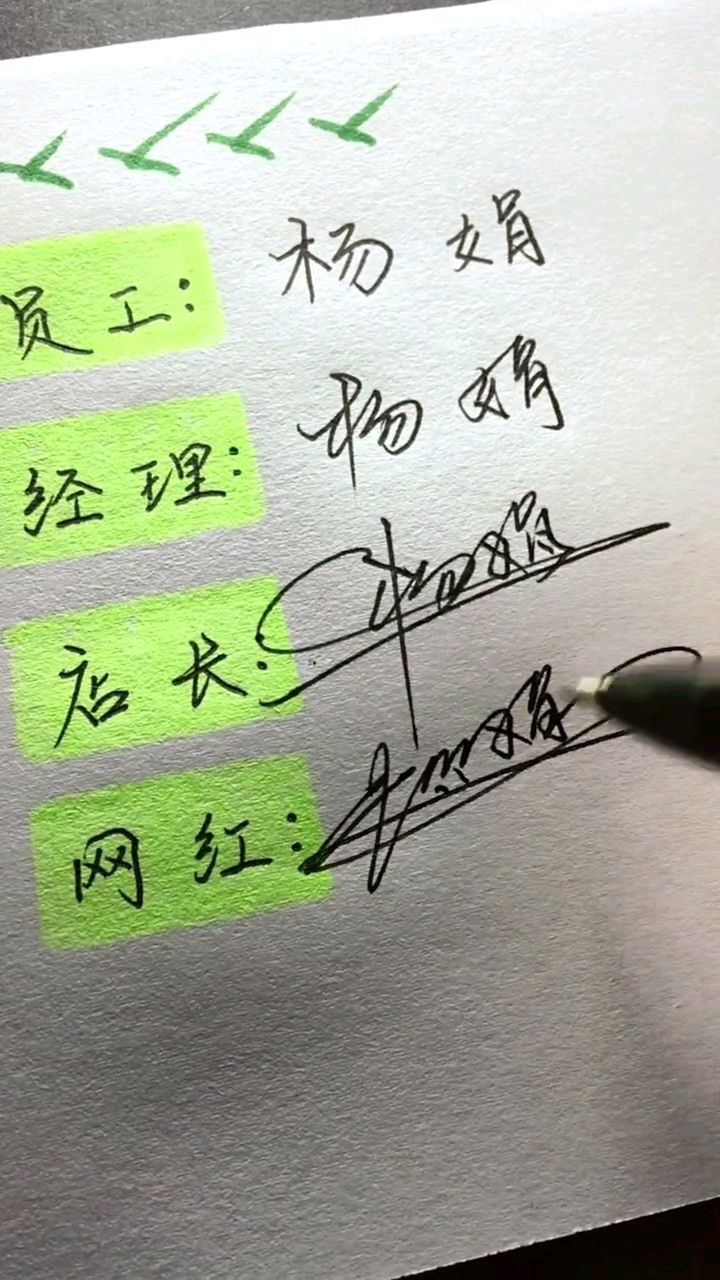 员工: 杨娟
经理: 杨娟
店长: 杨娟
网红: 杨娟